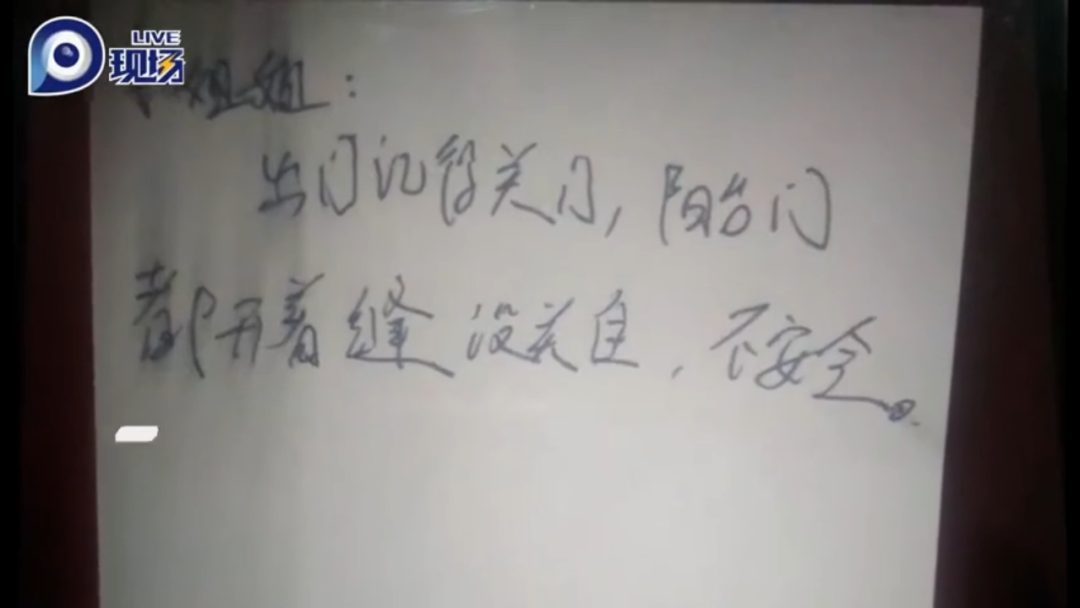 LIVE
现场
姐姐：
出门记得关门，阳台门
都开着缝没关自，不安全。